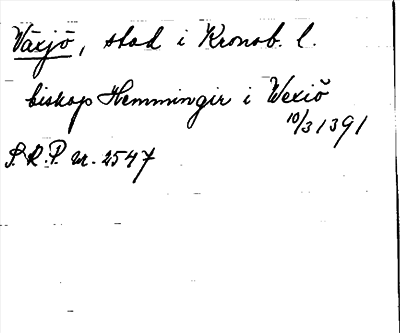 Växjö, stad i Kronob. l.
biskop Hemmingir i Wexiö
10/3 1391
S.R.P. nr. 2547